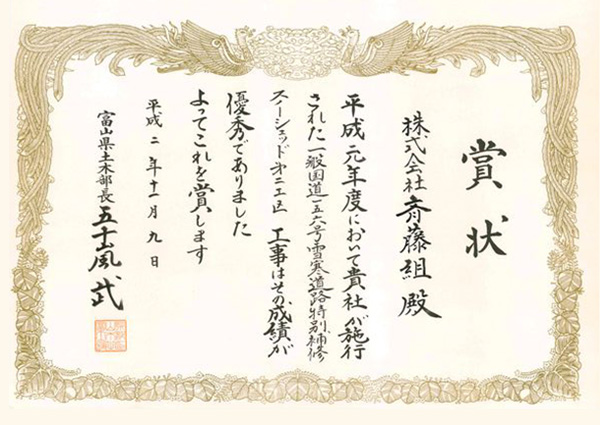 賞状
株式会社 斉藤組 殿
平成元年度において貴社が施行
された一般国道一五六号雪寒道路特別補修
スノーシェッド第二工区 工事はその成績が
優秀でありました
よってこれを賞します
平成二年十一月九日
富山県土木部長 五十嵐 武